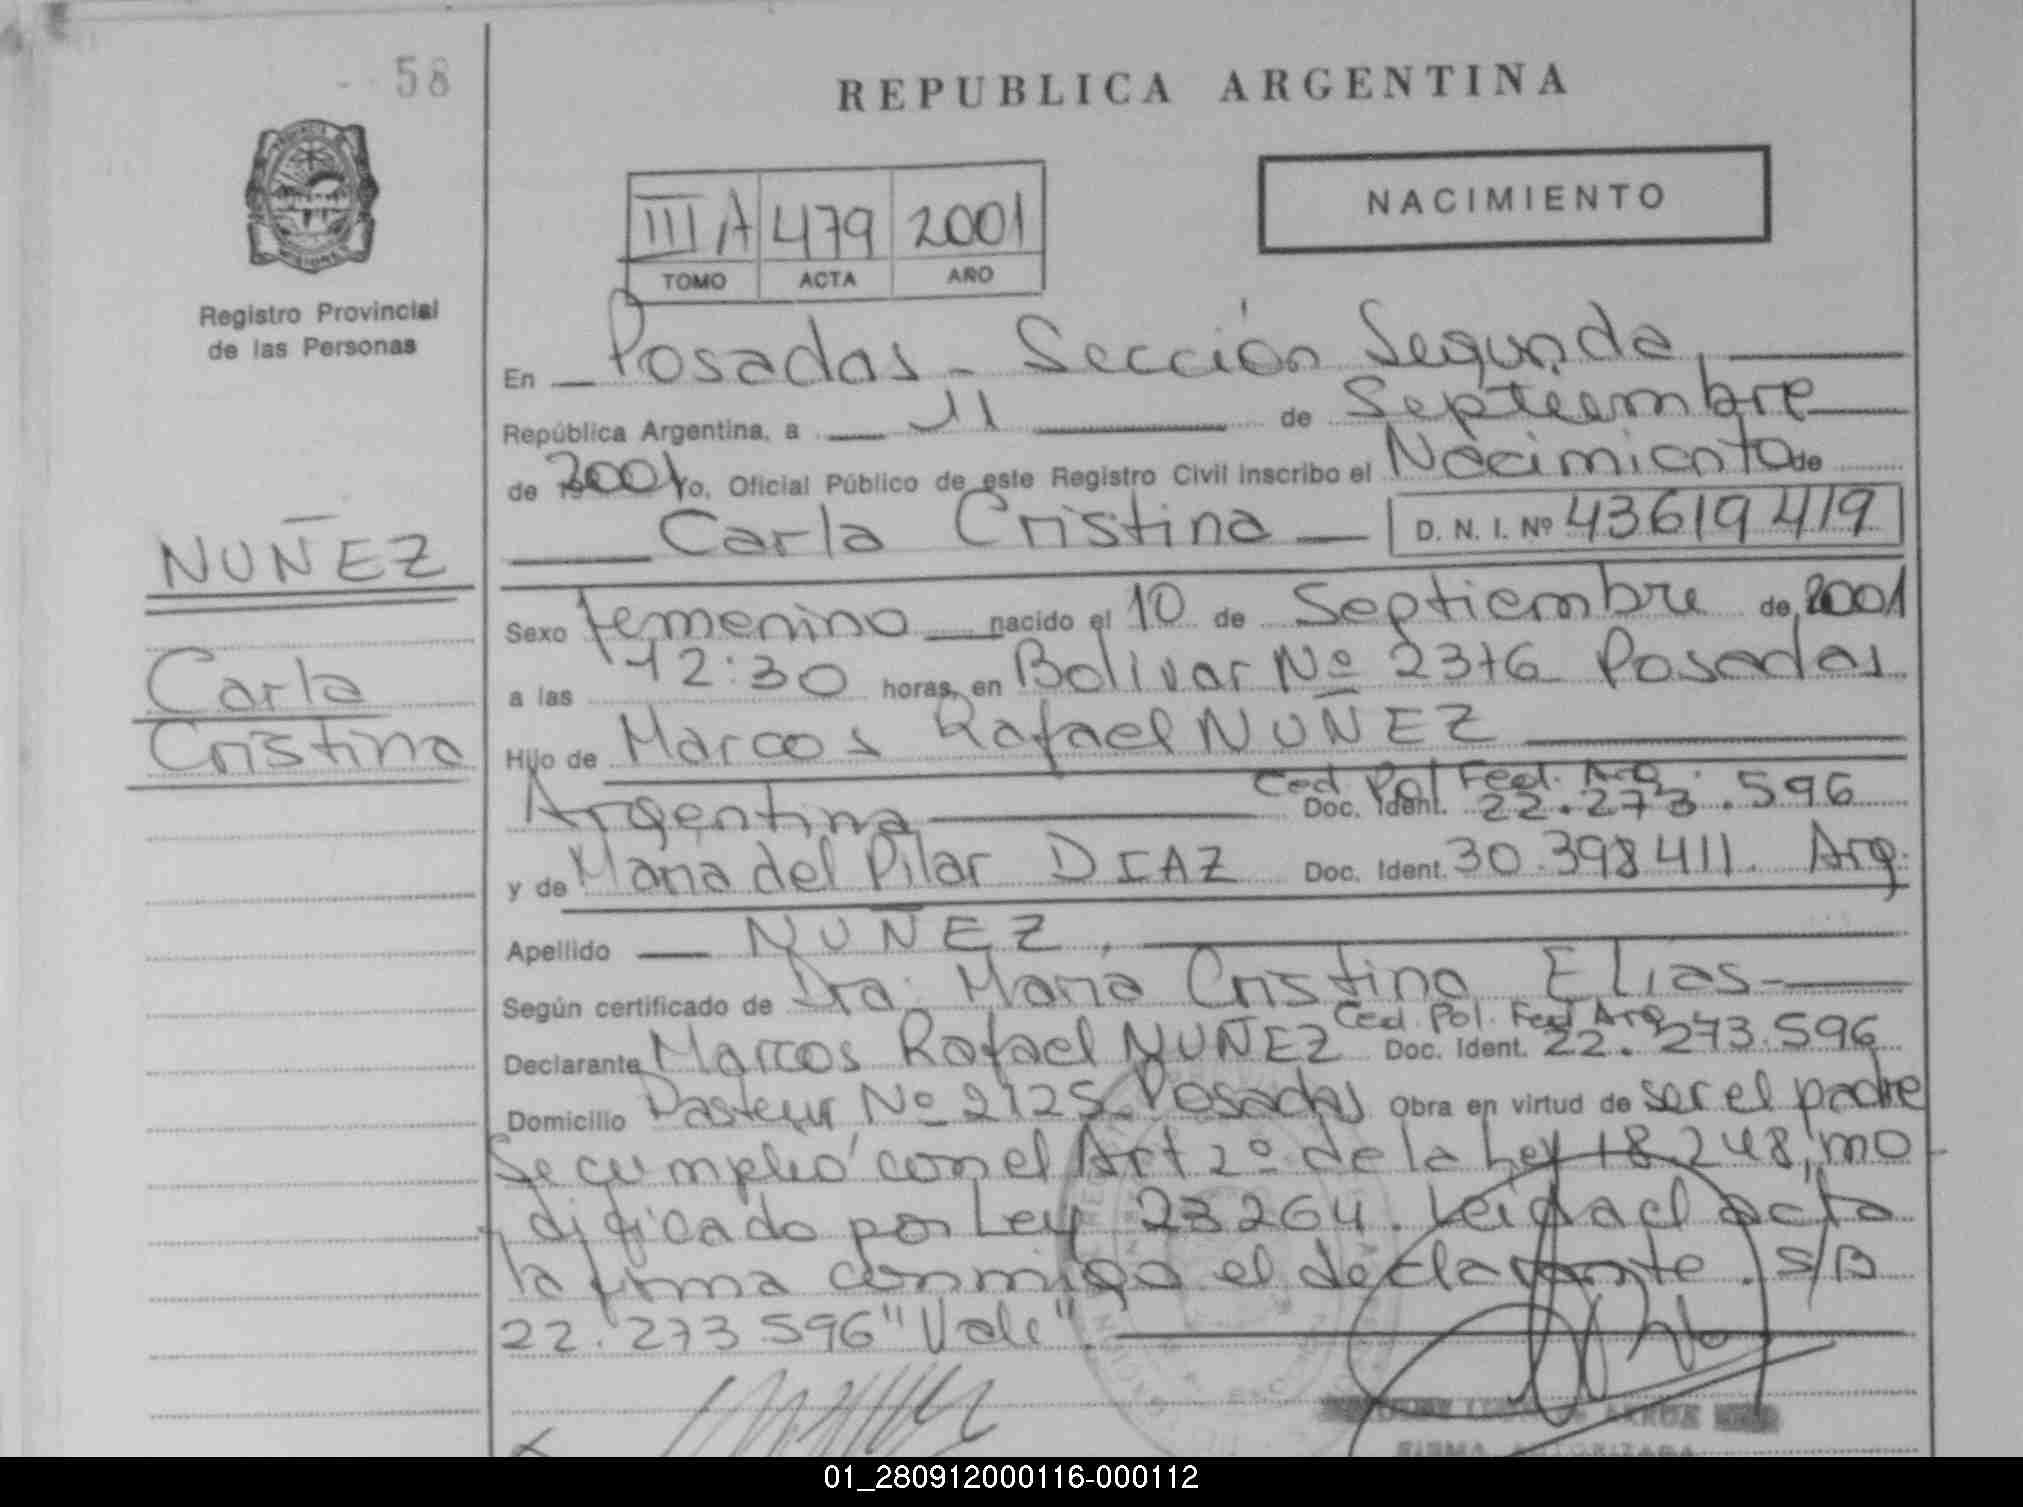 58
REPUBLICA ARGENTINA
NACIMIENTO
III A 479 2001
TOMO ACTA AÑO
Registro Provincial
de las Personas
En Posadas - Sección Segunda,
República Argentina, a 11 de Septiembre
de 2001 Yo, Oficial Público de este Registro Civil inscribo el Nacimiento de
Carla Cristina D. N. I. Nº 43619419
NUÑEZ
Carla
Cristina
Sexo femenino nacido el 10 de Septiembre de 2001
a las 12:30 horas, en Bolivar Nº 2376 Posadas
Hijo de Marcos Rafael NUÑEZ
Ced. Pol. Fed. Arg.
Argentina Doc. Ident. 22.273.596
y de Maria del Pilar DIAZ Doc. Ident. 30.398411. Arg.
Apellido NUÑEZ,
Según certificado de Dra. Maria Cristina Elias
Ced. Pol. Fed Arg
Declarante Marcos Rafael NUÑEZ Doc. Ident. 22.273.596
Domicilio Pasteur Nº 2125 Posadas Obra en virtud de ser el padre
Se cumplió con el Art 2º de la Ley 18.248, mo
dificado por Ley 23264. Leida el acta
la firma conmigo el declarante. S/B
22.273 596 "Vale".
FIRMA AUTORIZADA
01_280912000116-000112